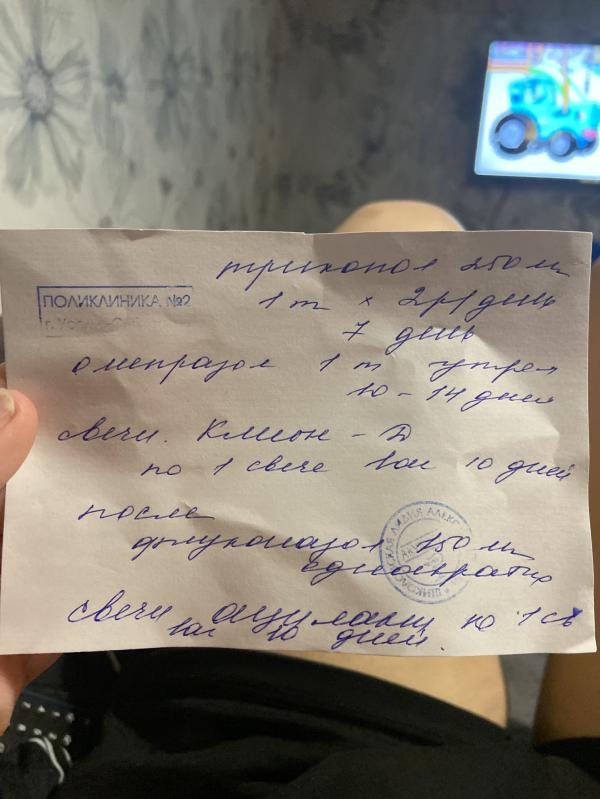 трихопол 250 мг
ПОЛИКЛИНИКА №2
1 т × 2р/день
7 день
омепразол 1 т утром
10 - 14 дней
свечи. Клион - Д
по 1 свече ваг 10 дней
после
флуконазол 150 мг
однократно
свечи ацилакт по 1 св
ваг 10 дней.